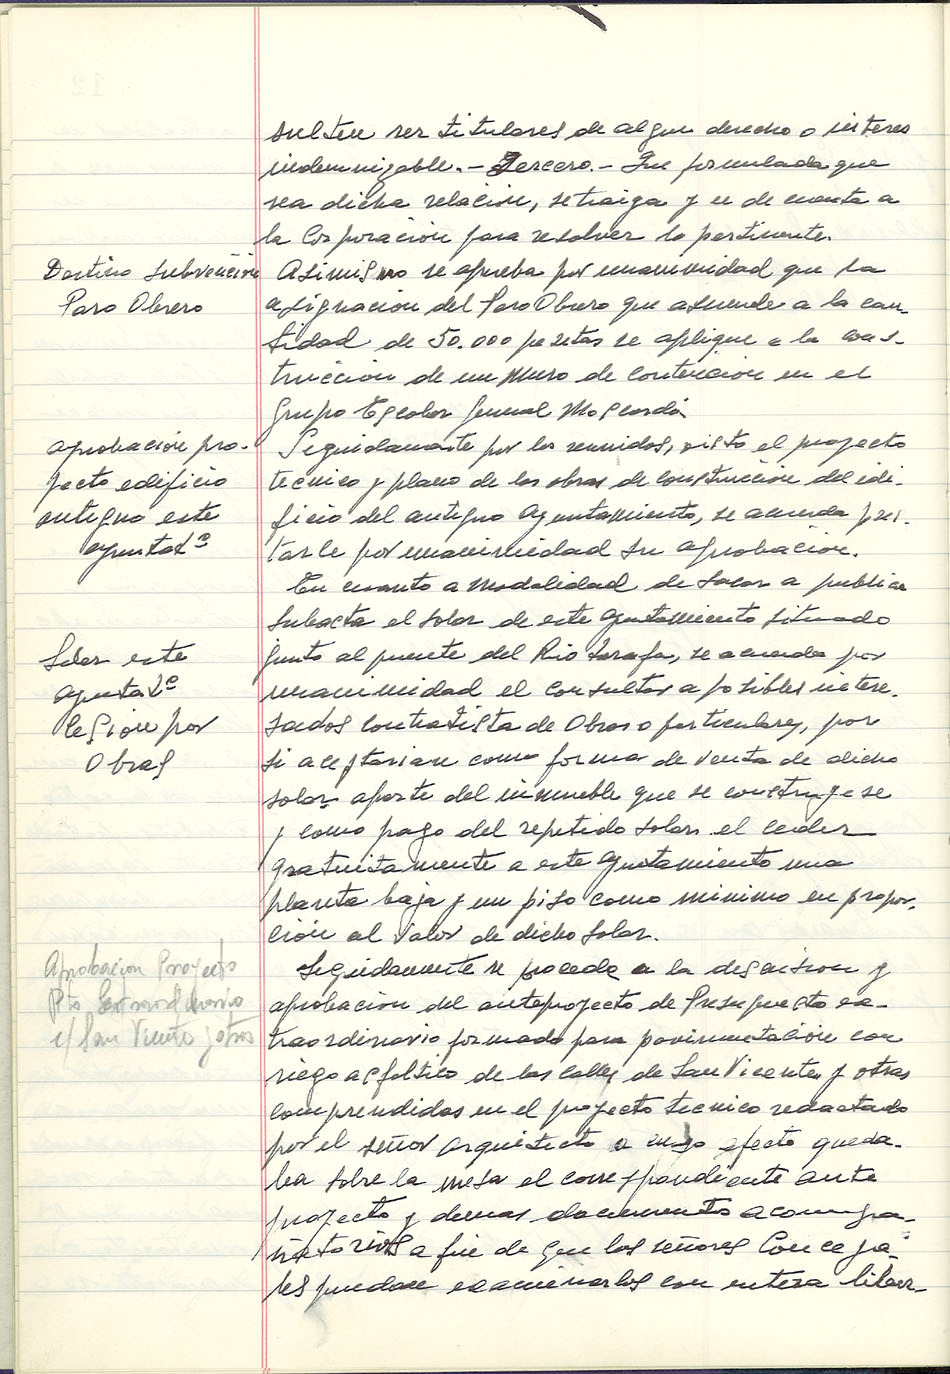 sulten ser titulares de algun derecho o interes
indemnizable.- Tercero.- Que formulada que
sea dicha relacion, se traiga y se de cuenta a
la Corporacion para resolver lo pertinente.
Destino Subvención
Paro Obrero
Asimismo se aprueba por unanimidad que la
asignacion del Paro Obrero que asciende a la can-
tidad de 50.000 pesetas se aplique a la cons-
truccion de un Muro de Contencion en el
Grupo Escolar General Moscardó.
aprobación pro-
yecto edificio
antiguo este
ayuntatº
Seguidamente por los reunidos, visto el proyecto
tecnico y plano de las obras de construccion del edi-
ficio del antiguo Ayuntamiento, se acuerda pres-
tarle por unanimidad su aprobacion.
En cuanto a Modalidad de Sacar a publica
Subasta el Solar de este Ayuntamiento situado
junto al puente del Rio Tarafa, se acuerda por
unanimidad el consultar a posibles intere-
sados Contratista de Obras o particulares, por
si aceptarian como forma de Venta de dicho
solar aparte del inmueble que se construyese
y como pago del repetido solar el ceder
gratuitamente a este Ayuntamiento una
planta baja y un piso como minimo en propor-
ción al Valor de dicho Solar.
Solar este
ayuntatº
Cesión por
Obras
Seguidamente se procede a la discusion y
aprobacion del anteproyecto de Presupuesto ex-
traordinario formado para pavimentación con
riego asfaltico de las calles de San Vicente y otras
comprendidas en el proyecto tecnico redactado
por el señor Arquitecto a cuyo efecto queda-
ba sobre la mesa el correspondiente ante
proyecto y demas documentos acompa-
ñatorios a fin de que los señores Conceja-
les puedan examinarlos con entera liber-
Aprobacion Proyecto
Pto Extraordinario
c/ San Vicente y otras